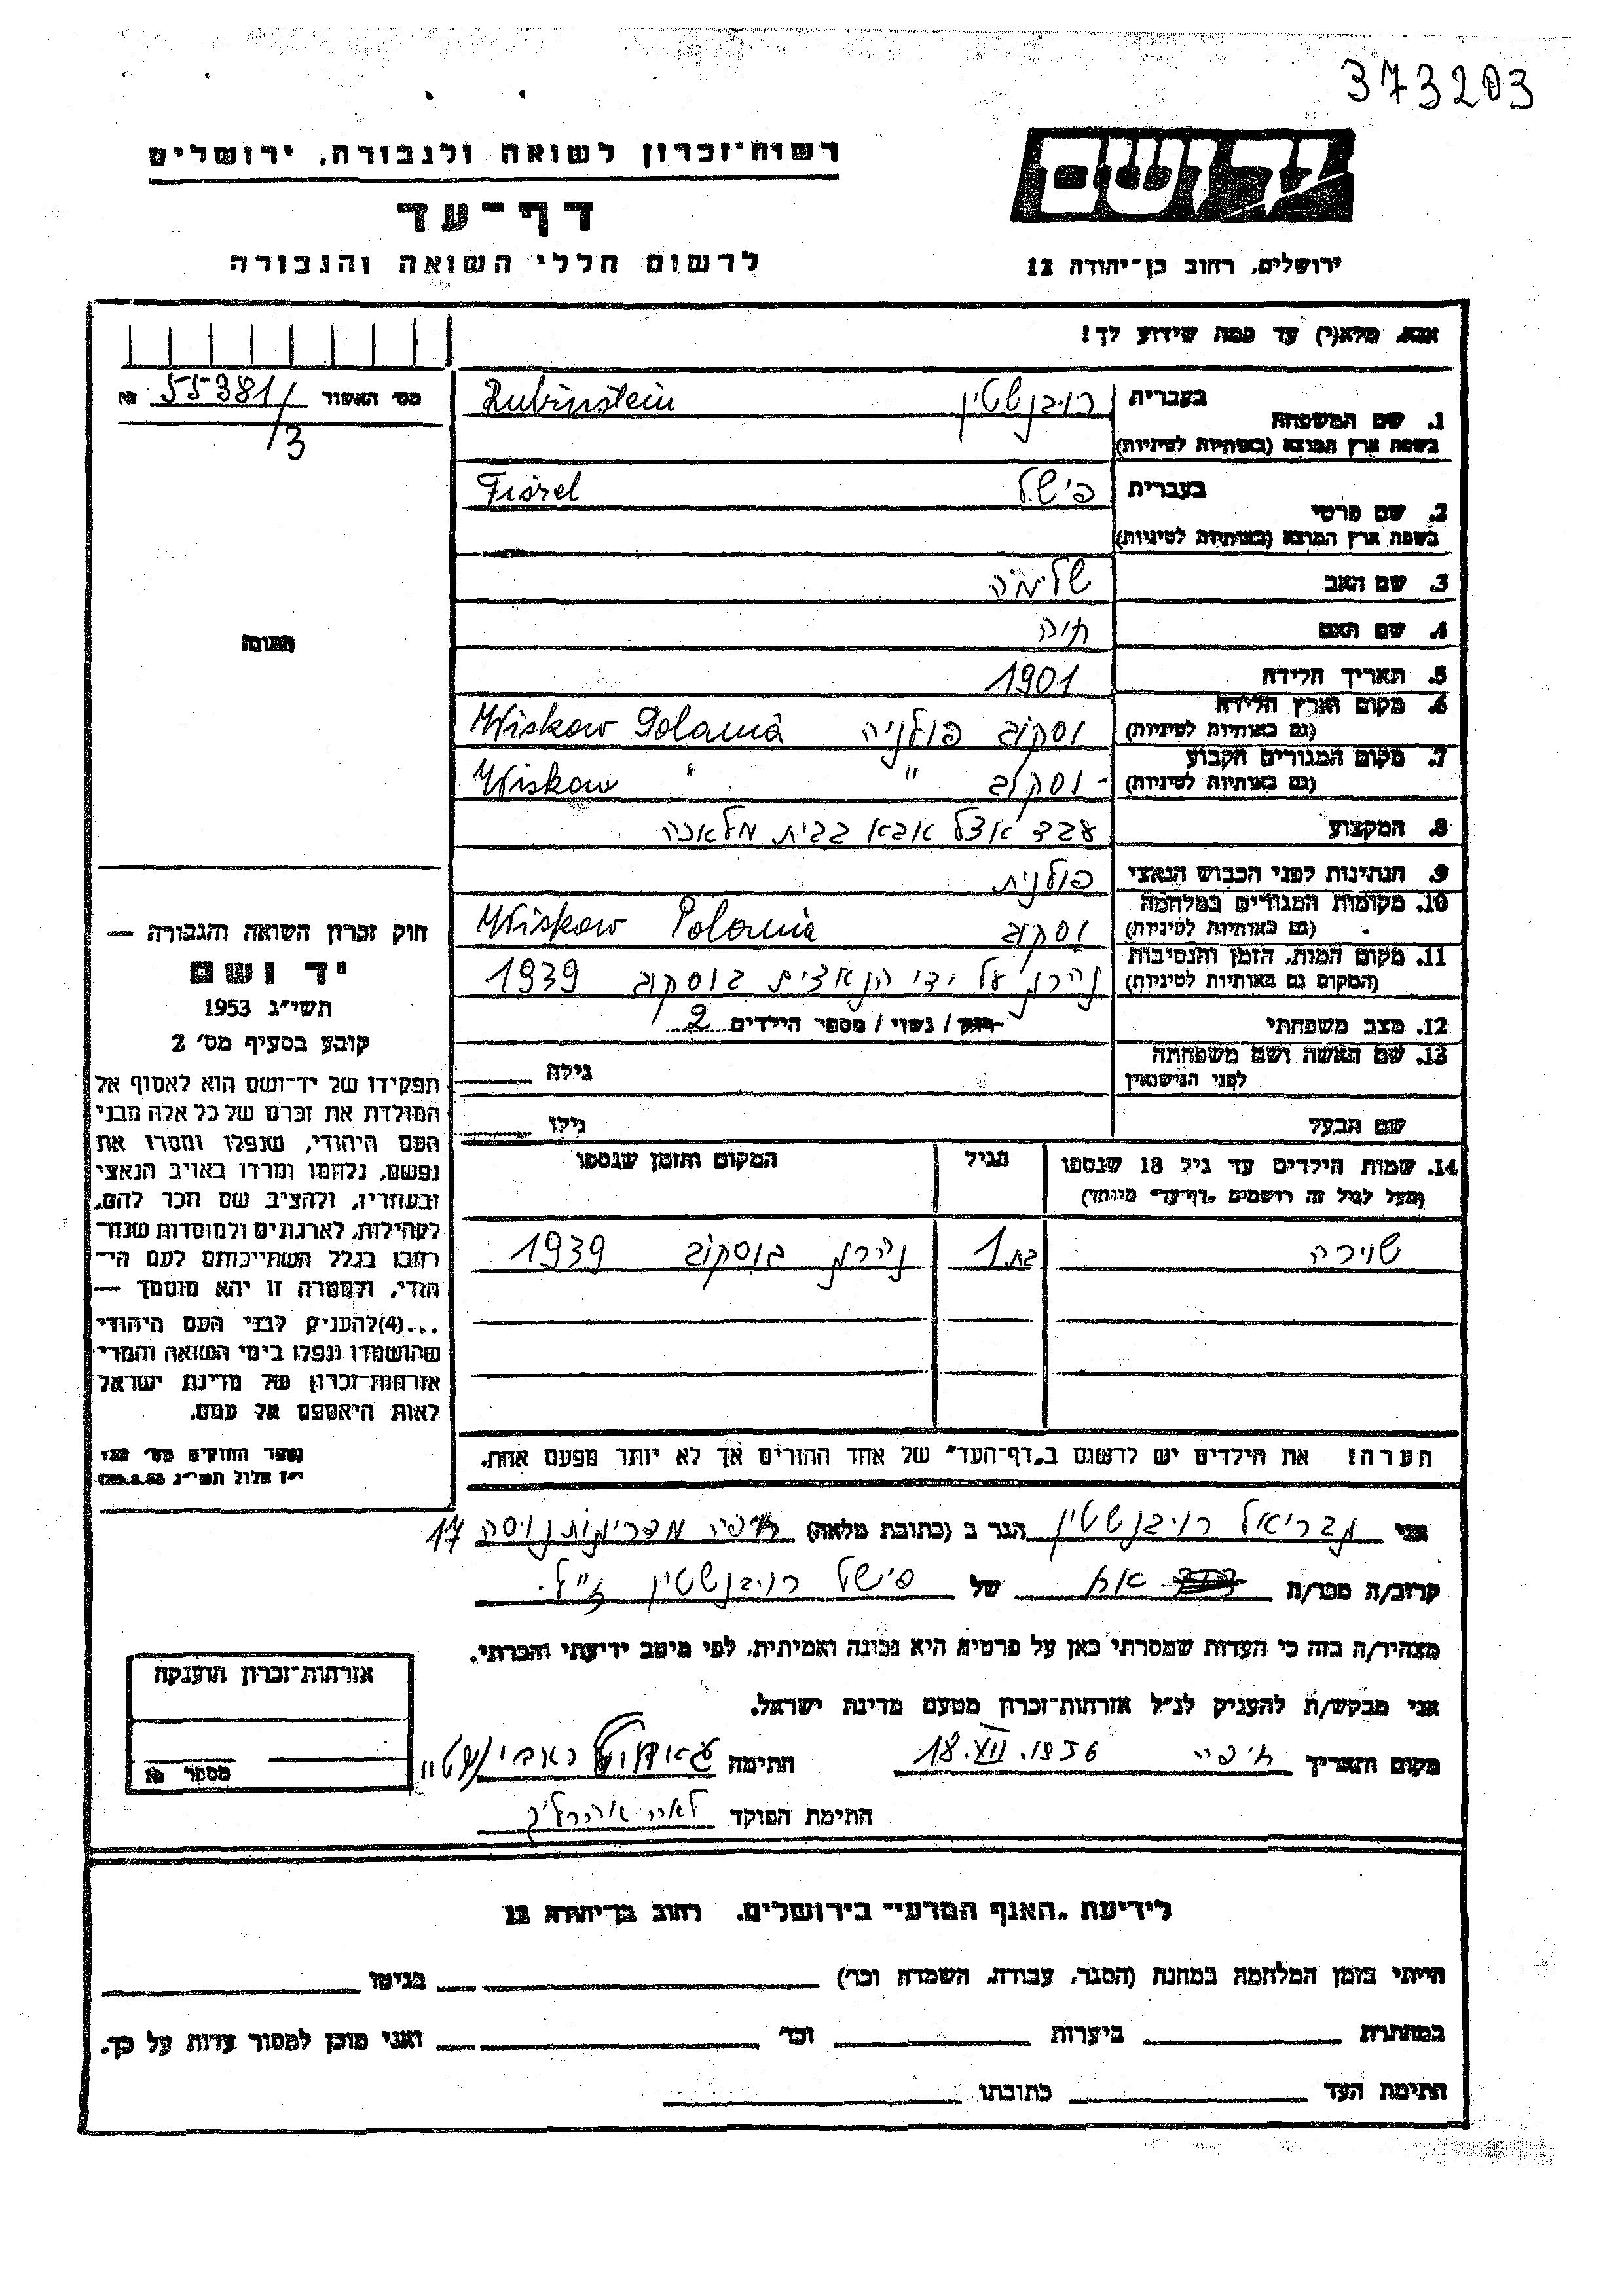 373203
רשות־זכרון לשואה ולגבורה, ירושלים
יד ושם
דף־עד
לרשום חללי השואה והגבורה
ירושלים, רחוב בן־יהודה 12
אנא, מלא(י) עד כמה שידוע לך!
מס׳ האשור 55381/3 №
1. שם המשפחה
בעברית רובינשטיין Rubinstein
בשפת ארץ המוצא (באותיות לטיניות)
2. שם פרטי
בעברית פישל Fiszel
בשפת ארץ המוצא (באותיות לטיניות)
3. שם האב
4. שם האם חיה
תמונה
5. תאריך הלידה 1901
6. מקום וארץ הלידה וסקוב פולניה Wiskow Polania
(גם באותיות לטיניות)
7. מקום המגורים הקבוע וסקוב " " Wiskow
(גם באותיות לטיניות)
8. המקצוע עבד אצל אבא בבית מלאכה
9. הנתינות לפני הכבוש הנאצי פולנית
10. מקומות המגורים במלחמה וסקוב Wiskow Polania
(גם באותיות לטיניות)
11. מקום המות, הזמן והנסיבות נהרג על ידי הנאצים בוסקוב 1939
(המקום גם באותיות לטיניות)
12. מצב משפחתי רווק / נשוי / מספר הילדים 2
13. שם האשה ושם משפחתה
לפני הנישואין
גילה
שם הבעל
גילו
14. שמות הילדים עד גיל 18 שנספו
(מעל לגיל זה רושמים „דף־עד״ מיוחד)
הגיל
המקום והזמן שנספו
בת 1 בוסקוב 1939
הערה! את הילדים יש לרשום ב„דף־העד״ של אחד ההורים אך לא יותר מפעם אחת.
חוק זכרון השואה והגבורה —
יד ושם
תשי״ג 1953
קובע בסעיף מס׳ 2
תפקידו של יד־ושם הוא לאסוף אל
המולדת את זכרם של כל אלה מבני
העם היהודי, שנפלו ומסרו את
נפשם, נלחמו ומרדו באויב הנאצי
ובעוזריו, ולהציב שם וזכר להם,
לקהילות, לארגונים ולמוסדות שנח־
רבו בגלל השתייכותם לעם היה־
ודי, ולמטרה זו יהא מוסמך —
...(4)להעניק לבני העם היהודי
שהושמדו ונפלו בימי השואה והמרי
אזרחות־זכרון של מדינת ישראל
לאות היאספם אל עמם.
(ספר החוקים מס׳ 132
י״ז אלול תשי״ג 28.8.53)
אני גבריאל רובינשטיין הגר ב (כתובת מלאה) חיפה 17
קרוב/ה מכר/ה אח של פישל רובינשטיין ז״ל.
מצהיר/ה בזה כי העדות שמסרתי כאן על פרטיה היא נכונה ואמיתית, לפי מיטב ידיעתי והכרתי.
אני מבקש/ת להעניק לנ״ל אזרחות־זכרון מטעם מדינת ישראל.
מקום ותאריך חיפה 18.VII.1956 חתימה
חתימת הפוקד
אזרחות־זכרון הוענקה
מספר №
לידיעת „האגף המדעי״ בירושלים, רחוב בן־יהודה 12
הייתי בזמן המלחמה במחנה (הסגר, עבודה, השמדה וכו׳) בגיטו
במחתרת ביערות וכו׳ ואני מוכן למסור עדות על כך.
חתימת העד כתובתו